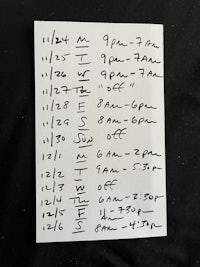 11/24 M 9pm - 7am
11/25 T 9pm - 7am
11/26 W 9pm - 7a
11/27 Th "off"
11/28 F 8am - 6pm
11/29 S 8am - 6pm
11/30 Sun off
12/1 M 6am - 2pm
12/2 T 9am - 5:30p
12/3 W off
12/4 Th 6am - 2:30p
12/5 F 11am - 730p
12/6 S 8am - 4:30p